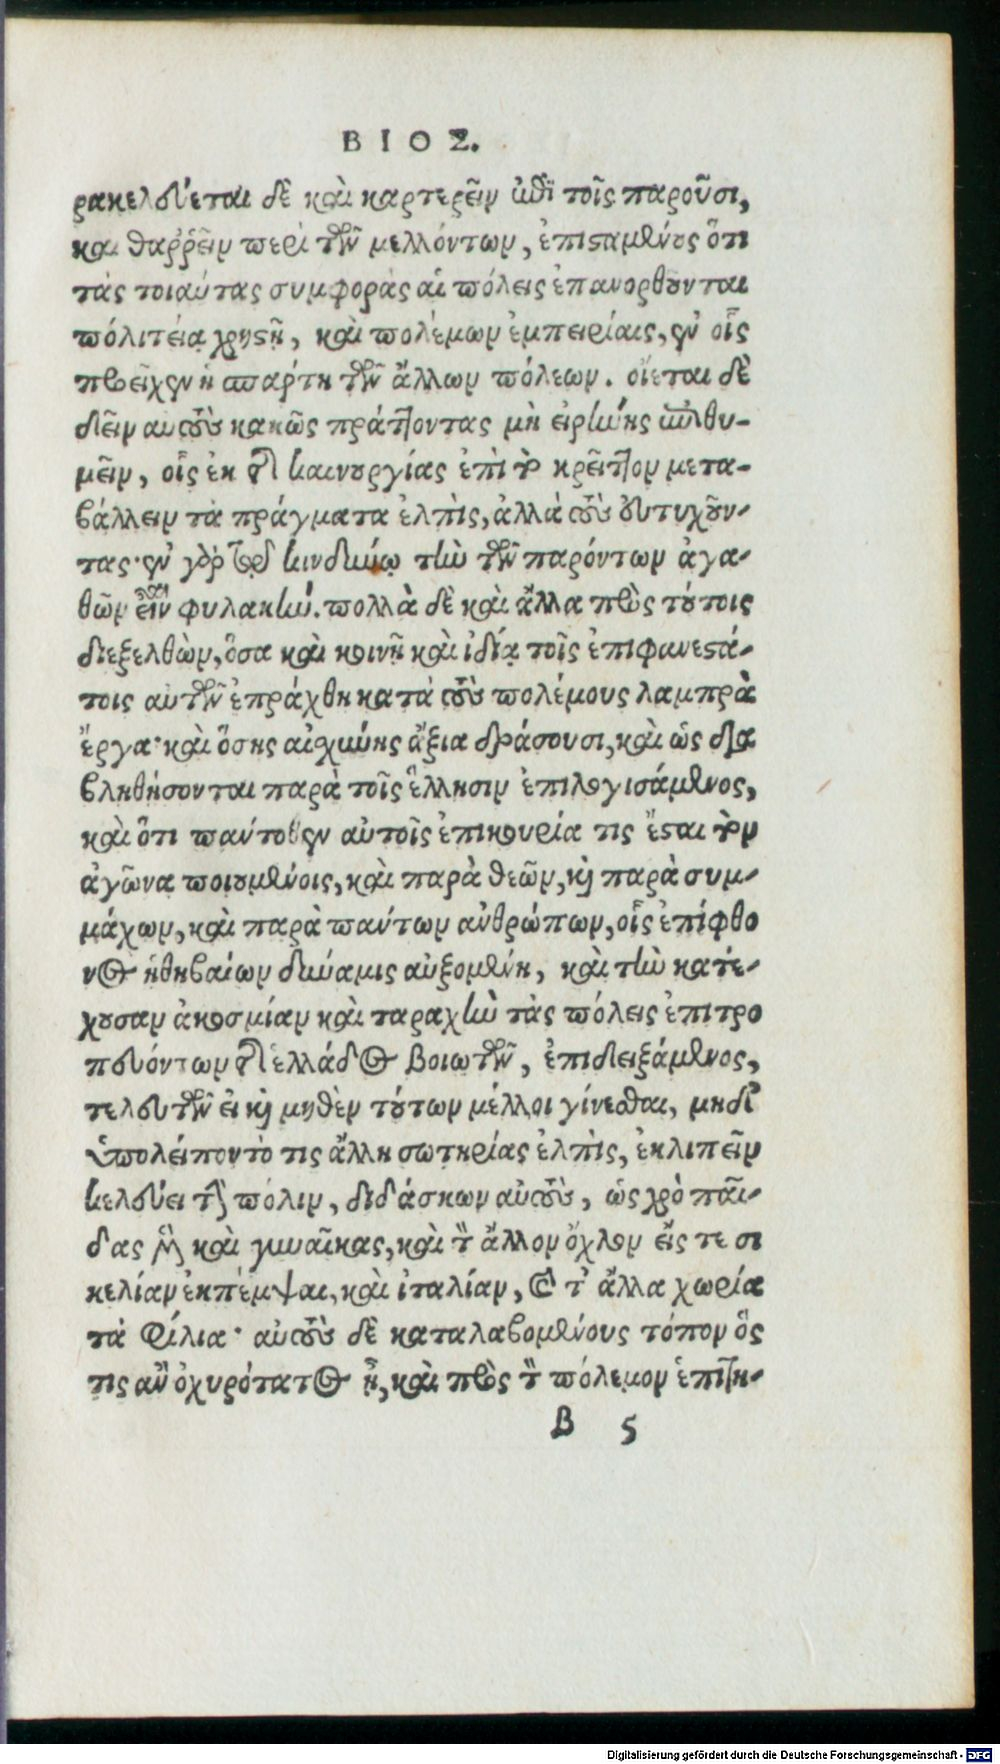 ΒΙΟΣ.
ρακελεύεται δὲ καὶ καρτερεῖν ἐπὶ τοῖς παροῦσι,
καὶ θαῤῥεῖν περὶ τῶν μελλόντων, ἐπισταμένους ὅτι
τὰς τοιαύτας συμφορὰς αἱ πόλεις ἐπανορθοῦνται
πολιτεία χρηστῇ, καὶ πολέμων ἐμπειρίαις, ἐν οἷς
προεῖχεν ἡ σπάρτη τῶν ἄλλων πόλεων. οἴεται δὲ
δεῖν αὐτοὺς κακῶς πράττοντας μὴ εἰρήνης ἐπιθυ-
μεῖν, οἷς ἐκ τῆς καινουργίας ἐπὶ τὸ κρεῖττον μετα-
βάλλειν τὰ πράγματα ἐλπὶς, ἀλλὰ τοὺς εὐτυχοῦν-
τας· ἐν γὰρ τῷ κινδύνῳ τὴν τῶν παρόντων ἀγα-
θῶν εἶναι φυλακήν. πολλὰ δὲ καὶ ἄλλα πρὸς τούτοις
διεξελθὼν, ὅσα καὶ κοινῇ καὶ ἰδίᾳ τοῖς ἐπιφανεστά-
τοις αὐτῶν ἐπράχθη κατὰ τοὺς πολέμους λαμπρὰ
ἔργα· καὶ ὅσης αἰσχύνης ἄξια δράσουσι, καὶ ὡς δια
βληθήσονται παρὰ τοῖς ἕλλησιν ἐπιλογισάμενος,
καὶ ὅτι πανταχόθεν αὐτοῖς ἐπικουρία τις ἔσται τὸν
ἀγῶνα ποιουμένοις, καὶ παρὰ θεῶν, καὶ παρὰ συμ-
μάχων, καὶ παρὰ πάντων ἀνθρώπων, οἷς ἐπίφθο
νος ἡ θηβαίων δύναμις αὐξομένη, καὶ τὴν κατέ-
χουσαν ἀκοσμίαν καὶ ταραχὴν τὰς πόλεις ἐπιτρο
πευόντων τῆς ἑλλάδος βοιωτῶν, ἐπιδειξάμενος,
τελευτῶν εἰ καὶ μηθὲν τούτων μέλλοι γίνεσθαι, μηδὲ
ὑπολείποντό τις ἄλλη σωτηρίας ἐλπὶς, ἐκλιπεῖν
κελεύει τὴν πόλιν, διδάσκων αὐτοὺς, ὡς χρὴ παῖ-
δας μὲν καὶ γυναῖκας, καὶ τὸν ἄλλον ὄχλον εἴς τε σι
κελίαν ἐκπέμψαι, καὶ ἰταλίαν, καὶ τ' ἄλλα χωρία
τὰ φίλια· αὐτοὺς δὲ καταλαβομένους τόπον ὅς
τις ἂν ὀχυρότατος ᾖ, καὶ πρὸς τὸν πόλεμον ἐπιτη-
B 5
Digitalisierung gefördert durch die Deutsche Forschungsgemeinschaft - DFG